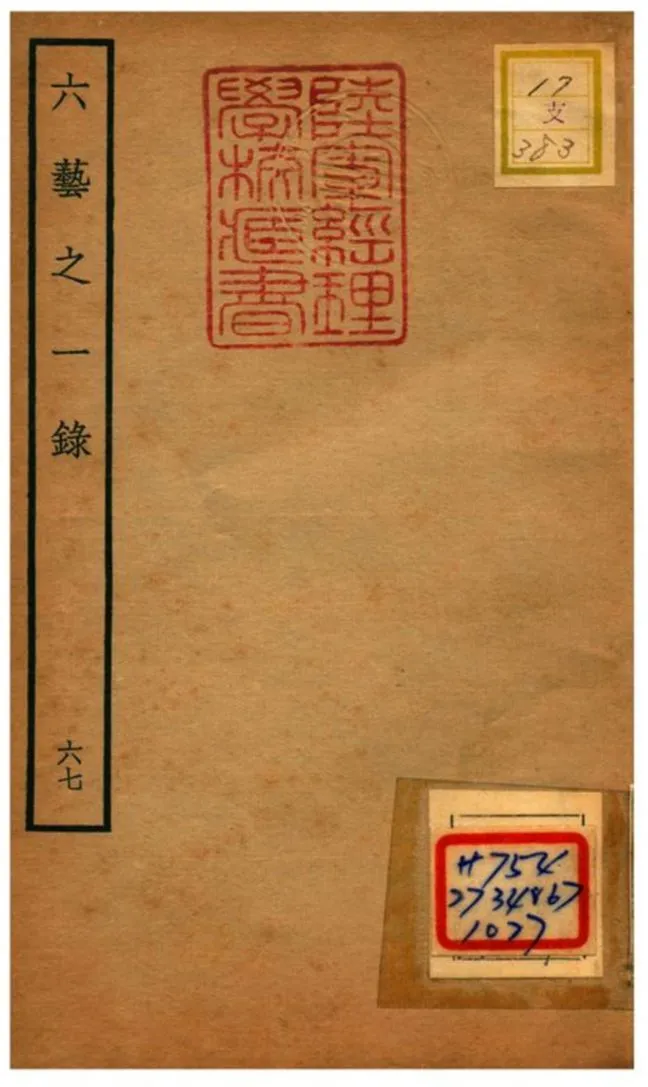 六藝之一錄
六七
陸軍經理
學校藏書
17
支
383
H754
2734867
1027